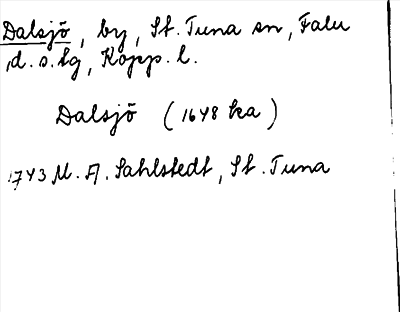 Dalsjö, by, St. Tuna sn, Falu
d. s. lg, Kopp. l.
Dalsjö (1648 ka)
1743 M. A. Sahlstedt, St. Tuna